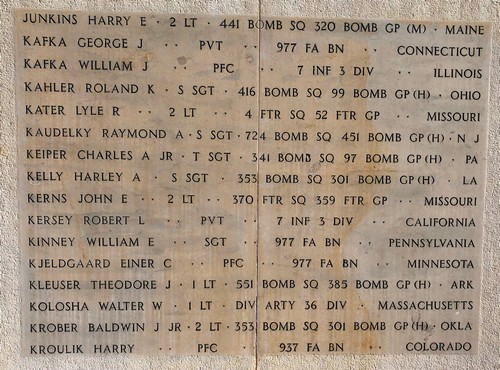 JUNKINS HARRY E · 2 LT · 441 BOMB SQ 320 BOMB GP (M) · MAINE
KAFKA GEORGE J ·· PVT ·· 977 FA BN ·· CONNECTICUT
KAFKA WILLIAM J ·· PFC ·· 7 INF 3 DIV ·· ILLINOIS
KAHLER ROLAND K · S SGT · 416 BOMB SQ 99 BOMB GP (H) · OHIO
KATER LYLE R ·· 2 LT ·· 4 FTR SQ 52 FTR GP ·· MISSOURI
KAUDELKY RAYMOND A · S SGT · 724 BOMB SQ 451 BOMB GP (H) · N J
KEIPER CHARLES A JR · T SGT · 341 BOMB SQ 97 BOMB GP (H) · PA
KELLY HARLEY A · S SGT · 353 BOMB SQ 301 BOMB GP (H) · LA
KERNS JOHN E ·· 2 LT ·· 370 FTR SQ 359 FTR GP ·· MISSOURI
KERSEY ROBERT L ·· PVT ·· 7 INF 3 DIV ·· CALIFORNIA
KINNEY WILLIAM E ·· SGT ·· 977 FA BN ·· PENNSYLVANIA
KJELDGAARD EINER C ·· PFC ·· 977 FA BN ·· MINNESOTA
KLEUSER THEODORE J · 1 LT · 551 BOMB SQ 385 BOMB GP (H) · ARK
KOLOSHA WALTER W · 1 LT · DIV ARTY 36 DIV · MASSACHUSETTS
KROBER BALDWIN J JR · 2 LT · 353 BOMB SQ 301 BOMB GP (H) · OKLA
KROULIK HARRY ·· PFC ·· 937 FA BN ·· COLORADO